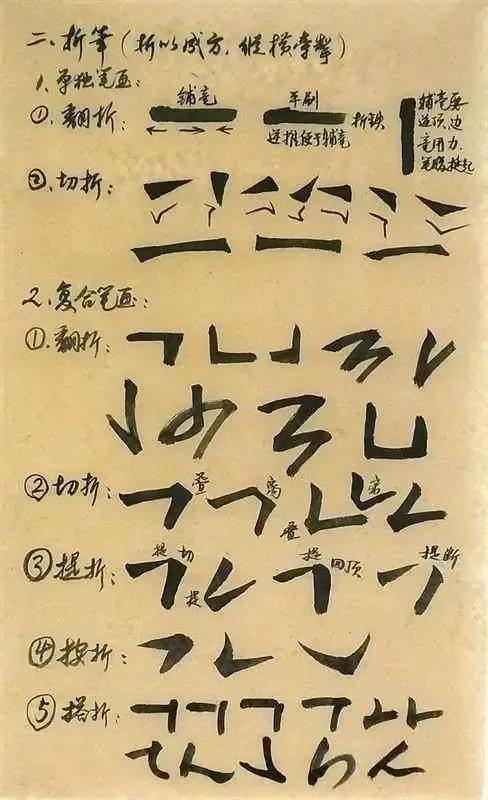 二、折笔(折以成方,纵横牵掣)
1、单独笔画:
①、翻折: 铺毫 平刷 折铁
逆推便于辅毫
辅毫要
逆顶,边
竞用力,
笔腹挺起
②、切折:
2、复合笔画:
①、翻折:
②切折: 叠 离
叠
③提折: 提 切 提 提 回顶 提断
④按折:
⑤搭折: